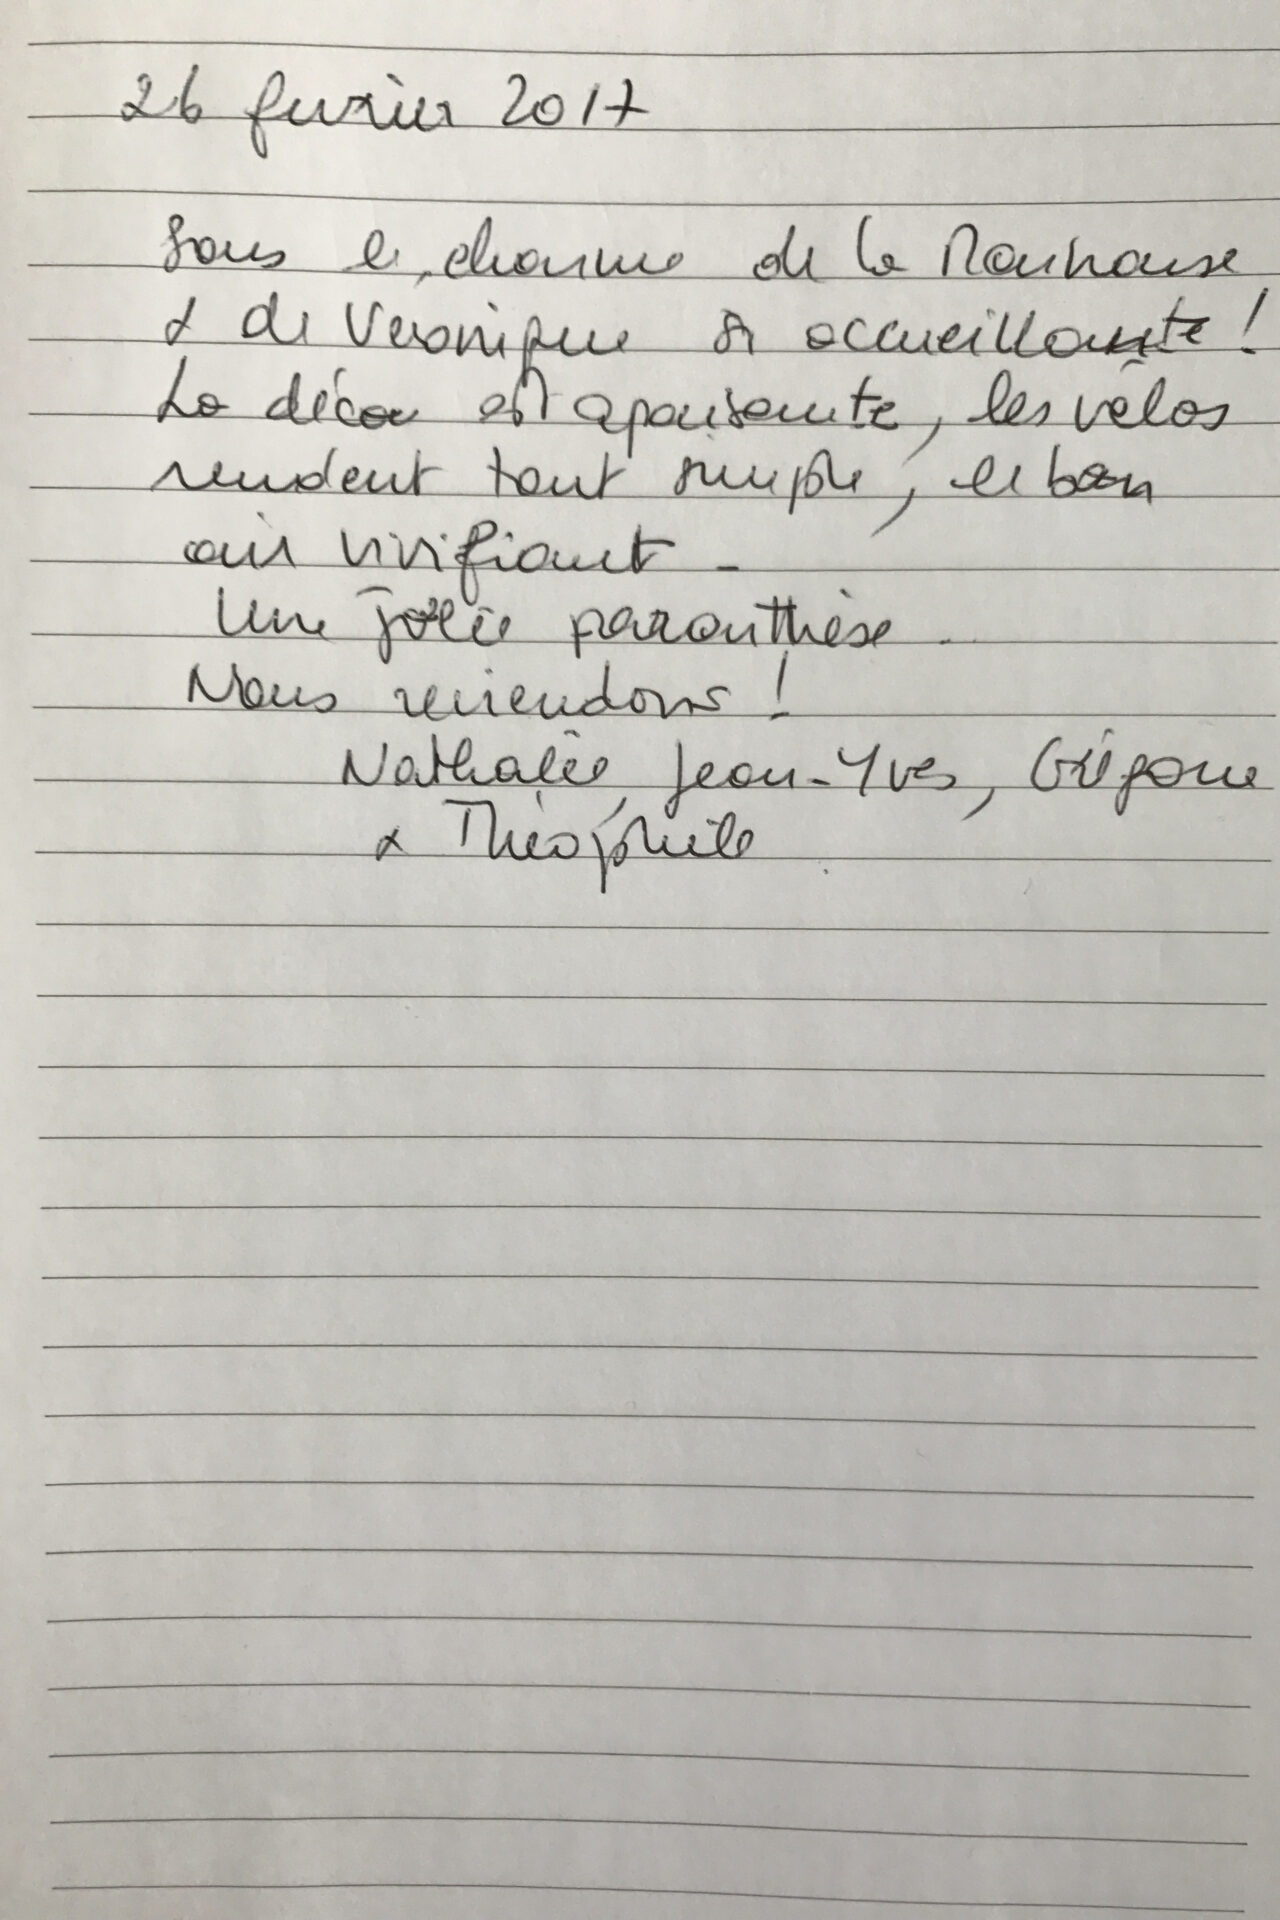 26 février 2017
Sous le charme de la
& de Véronique si accueillante !
La déco est apaisante, les vélos
rendent tout simple, le bon
air vivifiant -
Une jolie parenthèse.
Nous reviendrons !
Nathalie, Jean-Yves, Grégoire
& Théophile